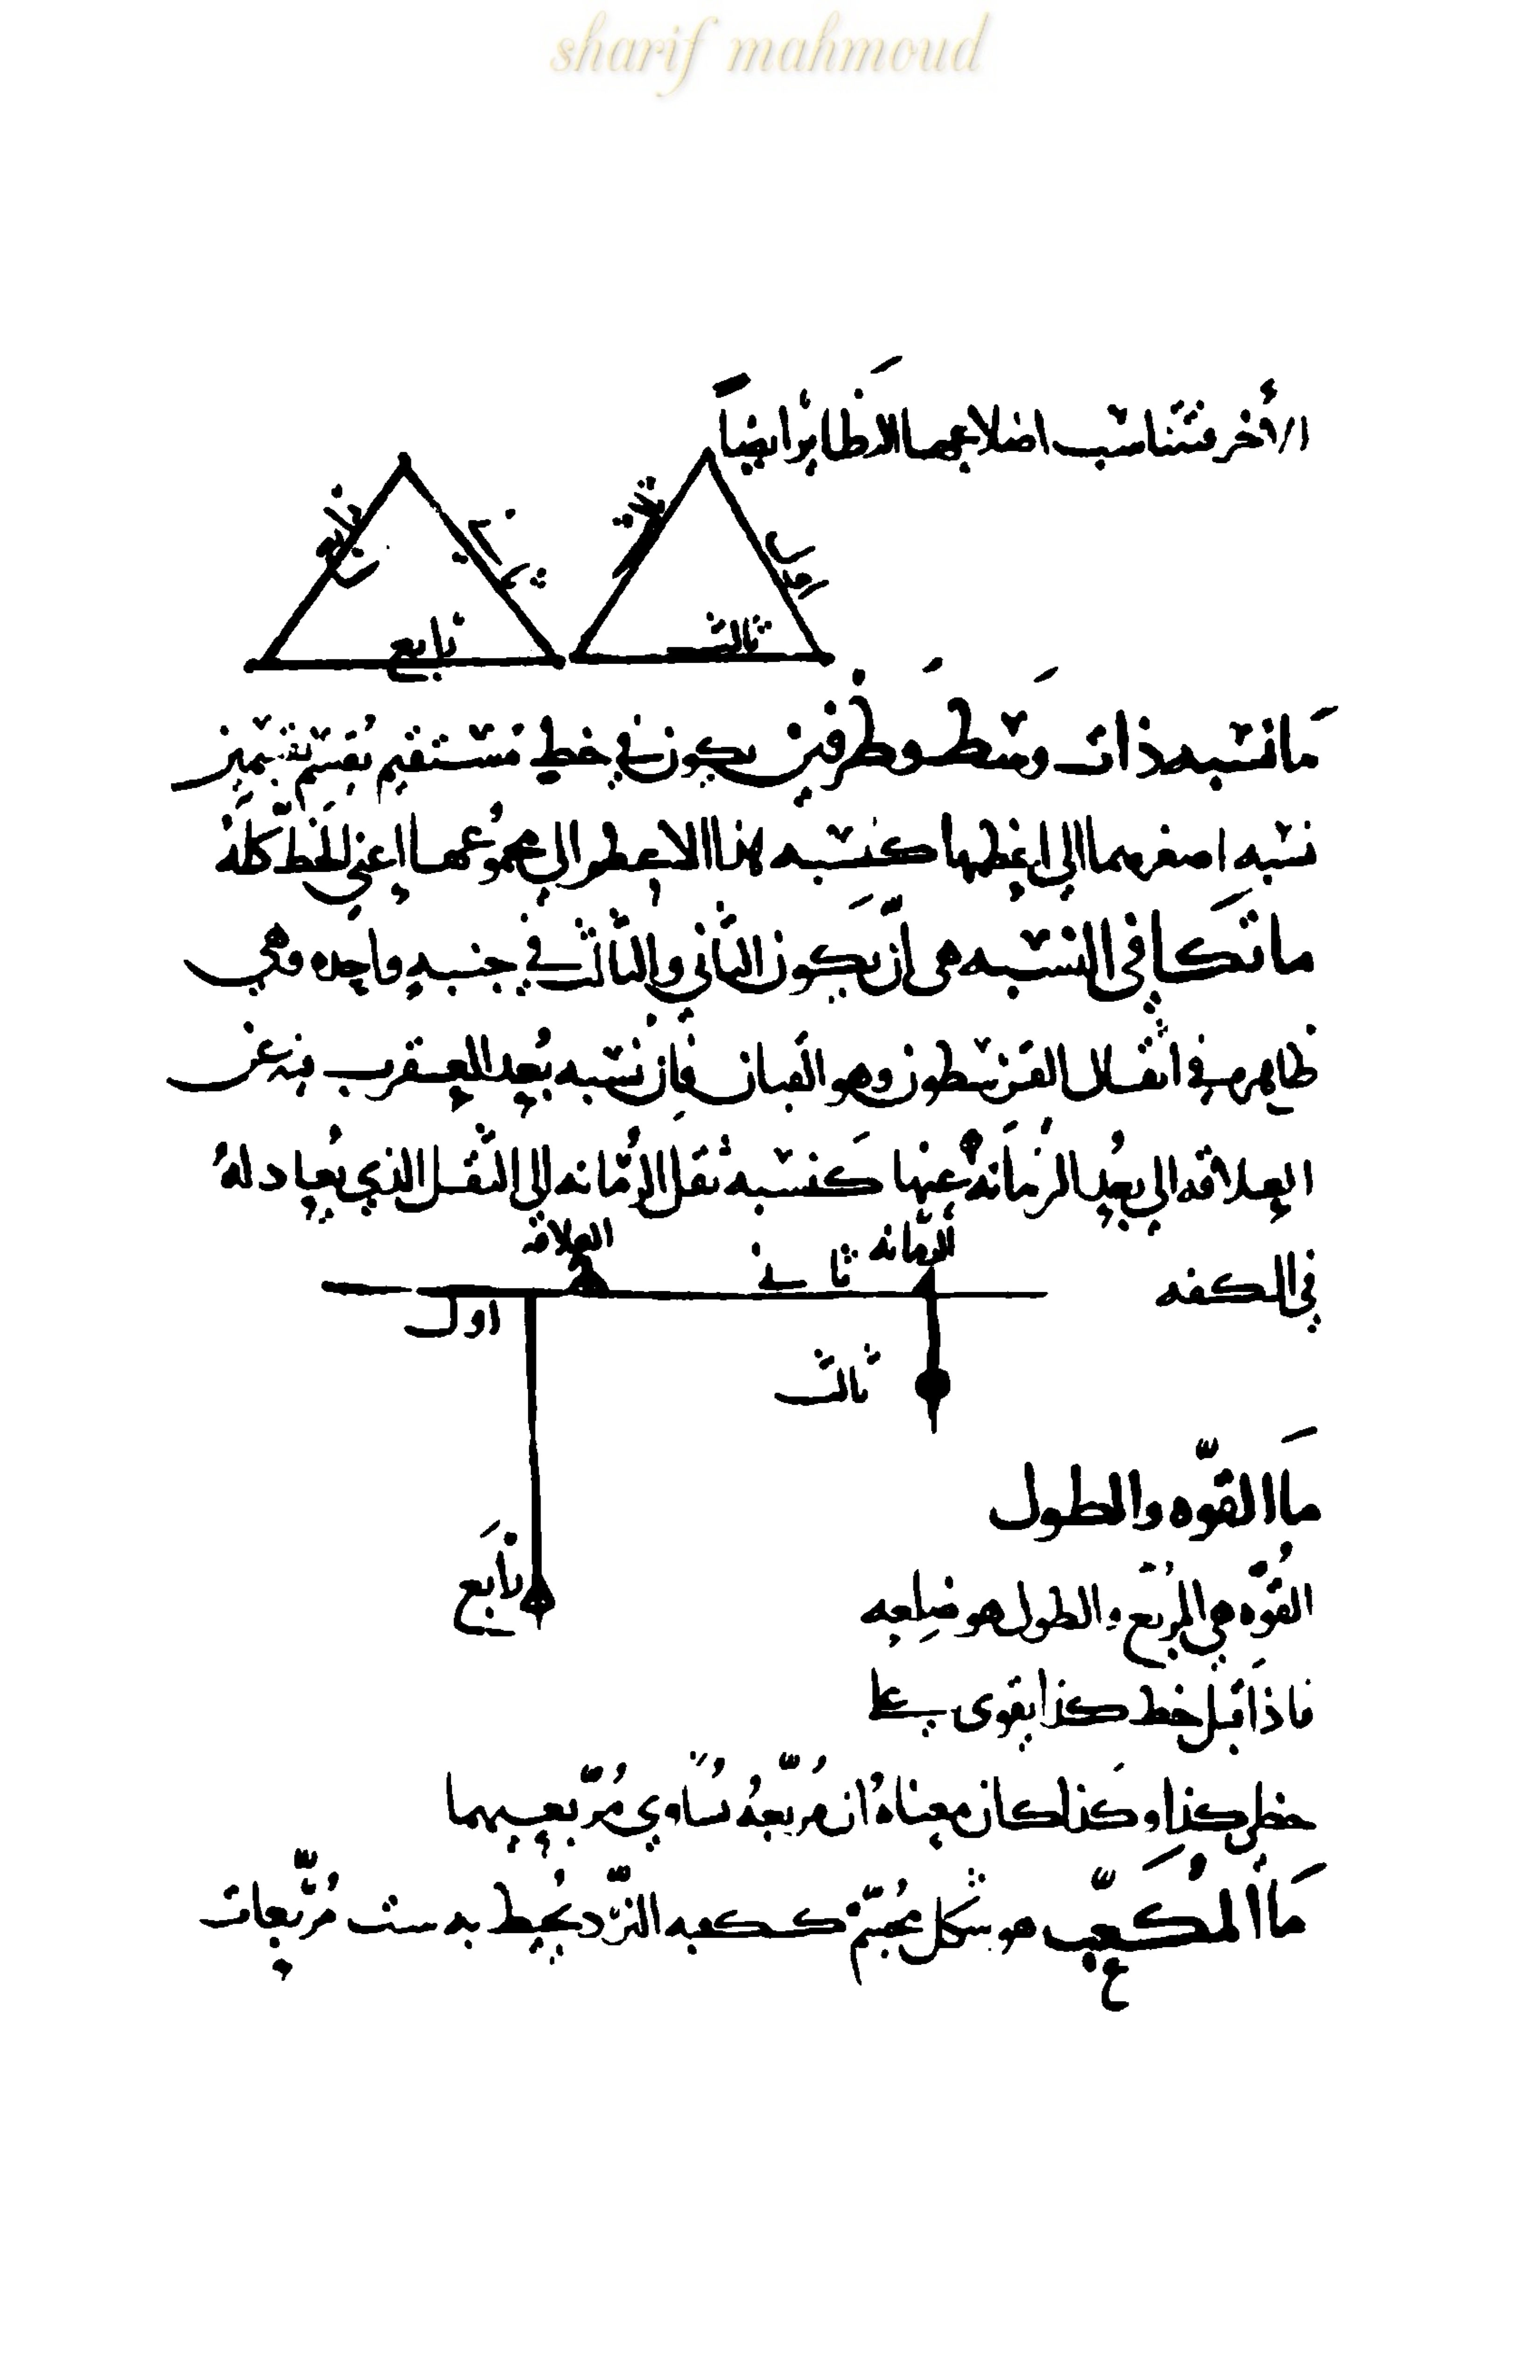 sharif mahmoud
الأخر فتتناسب اضلاعهما النظاير ايضاً
ثالث
رابع
ثالث
رابع
ما نسبه ذات وسط وطرفين يكون في خط مستقيم يقسم بقسمين
نسبه اصغرهما الى اعظمها كنسبه هذا الاعظم الى مجموعهما اعني الخط كله
ما تكافي النسبه هي ان يكون الثاني والثالث في جنبه واحده وهي
ظاهره في اثقال القرسطون وهو القبان فان نسبه بعد العقرب فيه عن
العلاقه الى بعد الرمانه عنها كنسبه ثقل الرمانه الى الثقل الذي يعادله
في الكفه
الرمانه
العلاقه
ثاني
اول
ثالث
رابع
ما القوّه والطول
القوّه هي المربع والطول هو ضلعه
فاذا قيل خط كذا يقوى على
خطي كذا وكذا كان معناه ان مربّعه يساوي مربّعيهما
ما المكعّب هو شكل مجسّم ككعبه النرد يحيط به ست مربّعات